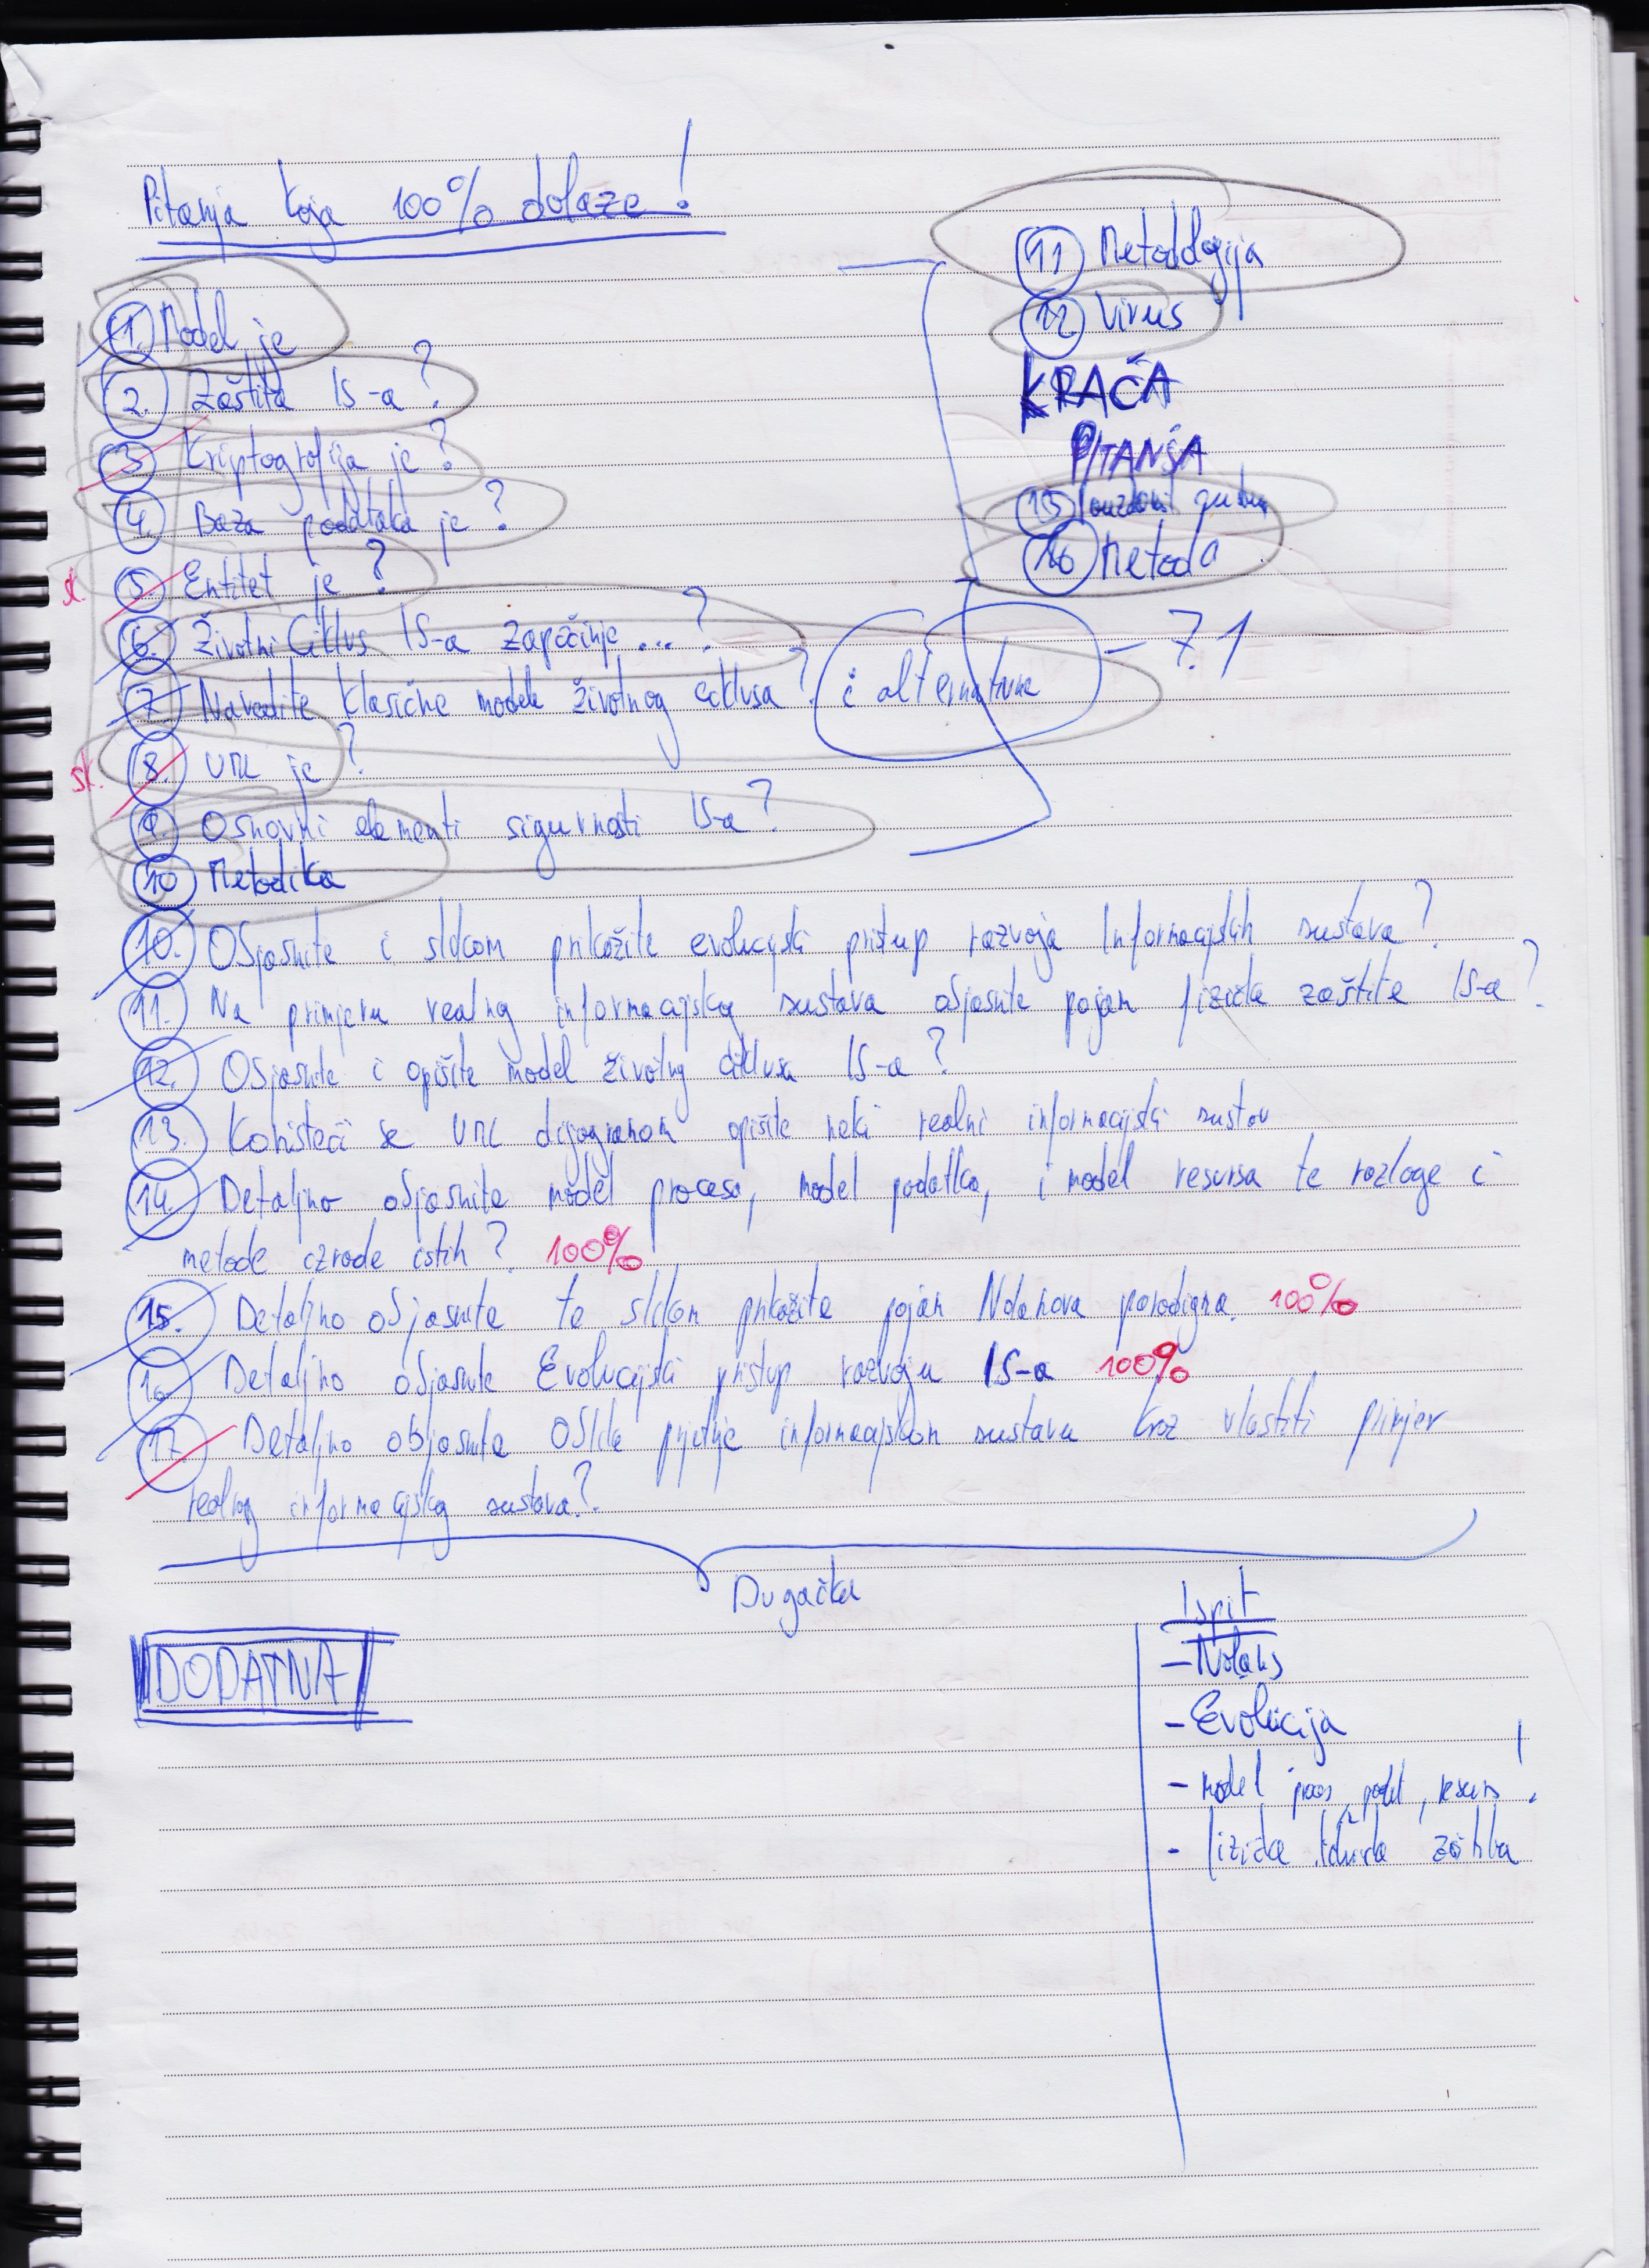 Pitanja koja 100% dolaze!
1. Model je
2. Zaštita IS-a?
3. Kriptografija je?
4. Baza podataka je?
5. Entitet je?
6. Životni Ciklus IS-a započinje...?
7. Navedite klasične modele životnog ciklusa? i alternativne - 7.1
8. UML je?
9. Osnovni elementi sigurnosti IS-a?
10 Metodika
11 Metodologija
12. Virus
KRAĆA
PITANJA
15
16 Metoda
10. Objasnite i slikom prikažite evolucijski pristup razvoja Informacijskih sustava?
11. Na primjeru realnog informacijskog sustava objasnite pojam fizičke zaštite IS-a?
12. Objasnite i opišite model životnog ciklusa IS-a?
13. Koristeći se UML dijagramom opišite neki realni informacijski sustav
14. Detaljno objasnite model procesa, model podatka, i model resursa te razloge i
metode izrade istih? 100%
15. Detaljno objasnite te slikom prikažite pojam Nolanova paradigma. 100%
16. Detaljno objasnite Evolucijski pristup razvoju IS-a 100%
17. Detaljno objasnite oblike prijetnje informacijskom sustavu kroz vlastiti primjer
realnog informacijskog sustava?
Dugačka
DODATNA
Ispit
- Nolans
- Evolucija
- model proces, podat, resurs!
- fizička tehnička zaštita